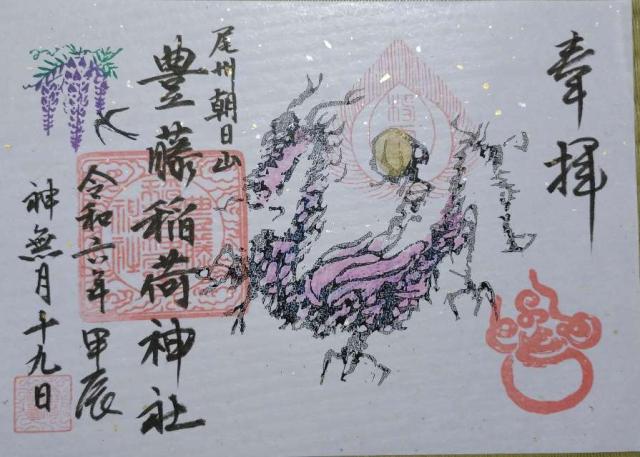 奉拝
尾州朝日山
豊藤稲荷神社
令和六年甲辰
神無月十九日